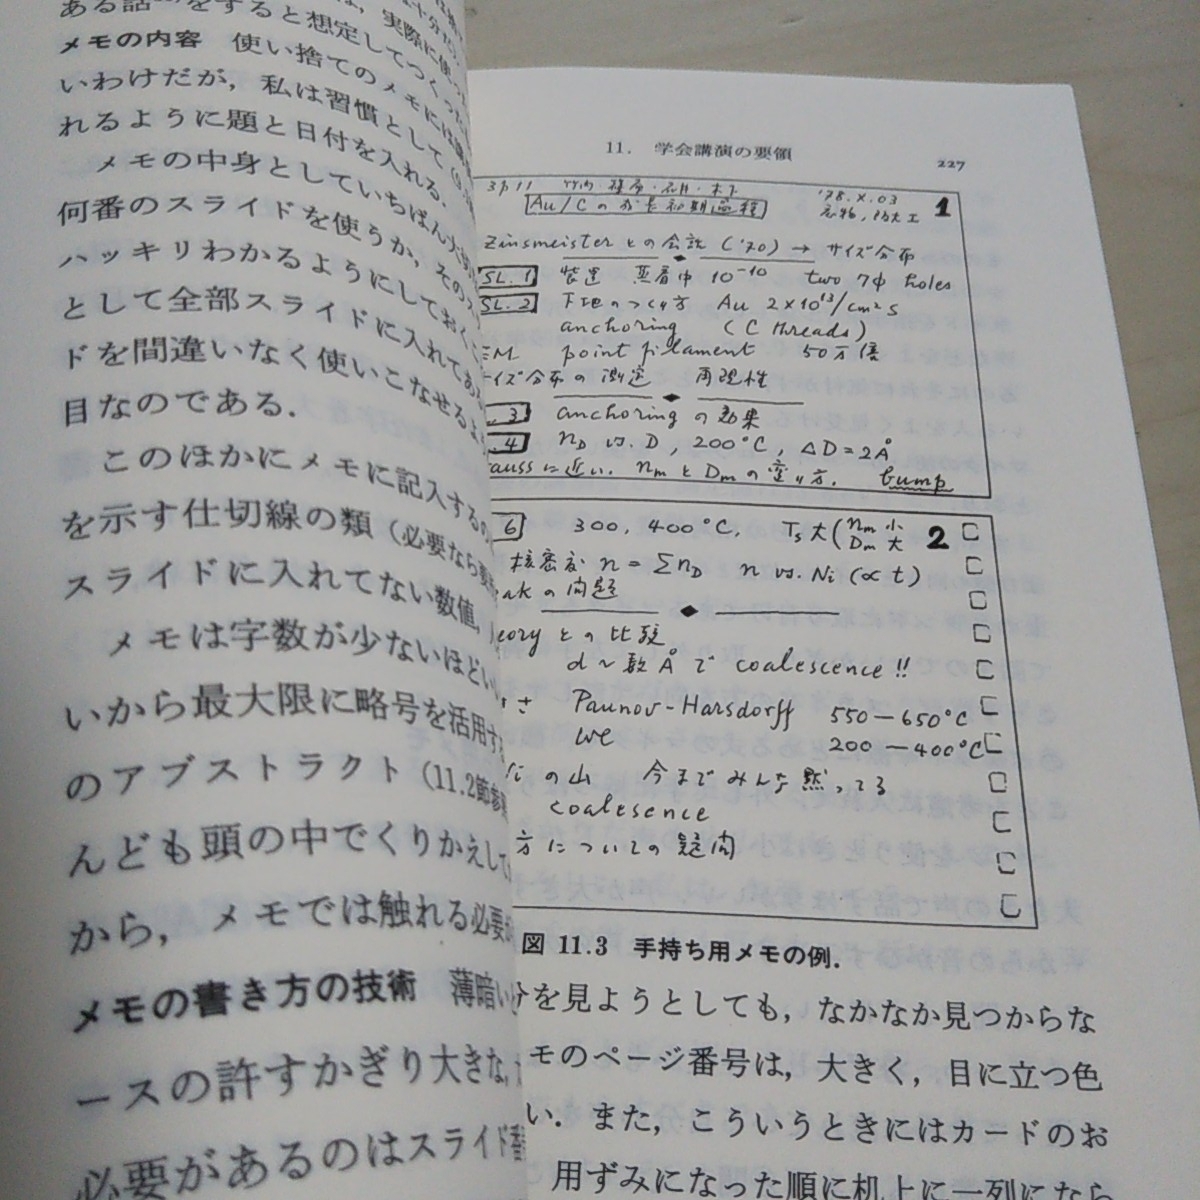 ある話…をすると想定してつくった
メモの内容 使い捨てのメモには
いわけだが，私は習慣として
れるように題と日付を入れる．
メモの中身としていちばん大切
何番のスライドを使うか，その
ハッキリわかるようにしておく
として全部スライドに入れてあ
ドを間違いなく使いこなせるよ
目なのである．
このほかにメモに記入するの
を示す仕切線の類（必要なら
スライドに入れてない数値，
メモは字数が少ないほどい
いから最大限に略号を活用す
のアブストラクト（11.2節参
んども頭の中でくりかえして
から，メモでは触れる必要
メモの書き方の技術 薄暗い
ースの許すかぎり大きな，
必要があるのはスライド番
11． 学会講演の要領 227
'78.X.03 1
Au/Cの成長初期過程
Zinsmeisterとの会話('70)→サイズ分布
SL.1 装置 蒸着中 10⁻¹⁰ two 7φ holes
SL.2 下地のつくり方 Au 2×10¹³/cm²s
anchoring (C threads)
EM point filament 50万倍
イズ分布の測定 再現性
.3 anchoringの効果
.4 n_D vs. D, 200°C, ΔD=2Å
aussに近い. n_mとD_mの変り方. bump
6 300, 400°C, Ts大(n_m 小 D_m 大 2
核密度 n=Σn_D n vs. Ni(∝t)
akの問題
eoryとの比較
d～数Åでcoalescence!!
さ Paunov-Harsdorff 550—650°C
we 200—400°C
の山 今までみんな黙ってる
coalesence
方についての疑問
図 11.3 手持ち用メモの例．
分を見ようとしても，なかなか見つからな
モのページ番号は，大きく，目に立つ色
い．また，こういうときにはカードのお
用ずみになった順に机上に一列になら